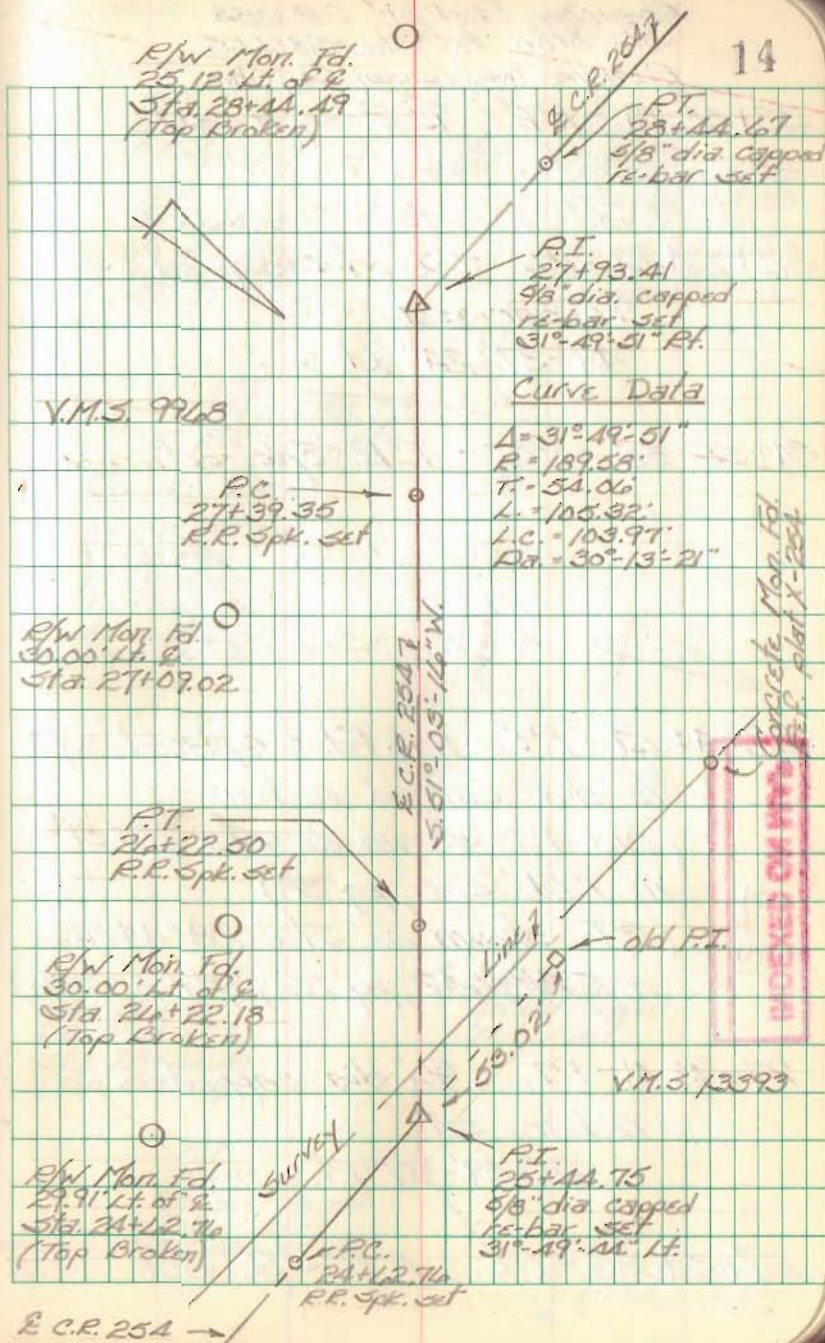 14
R/W Mon. Fd.
25.12' Lt. of ℄
Sta. 28+44.49
(Top Broken)
℄ C.R. 254.7
P.T.
28+44.67
5/8" dia. capped
re-bar set
P.I.
27+93.41
5/8" dia. capped
re-bar set
31°-49'-51" Rt.
V.M.S. 9968
Curve Data
Δ = 31°-49'-51"
R. = 189.58'
T. = 54.06'
L. = 105.32'
L.C. = 103.97'
Da. = 30°-13'-21"
P.C.
27+39.35
R.R. Spk. set
Concrete Mon. Fd.
Ref. plat X-254
R/W Mon. Fd.
30.00' Lt. ℄
Sta. 27+09.02
℄ C.R. 254.7
S. 51°-03'-16" W.
INDEXED ON
P.T.
26+22.50
R.R. Spk. set
R/W Mon. Fd.
30.00' Lt. of ℄
Sta. 26+22.18
(Top Broken)
Line
old P.I.
53.02'
V.M.S. 13393
Survey
R/W Mon. Fd.
29.91' Lt. of ℄
Sta. 24+62.76
(Top Broken)
P.I.
25+44.75
5/8" dia. capped
re-bar set
31°-49'-44" Lt.
P.C.
24+62.76
R.R. Spk. set
℄ C.R. 254